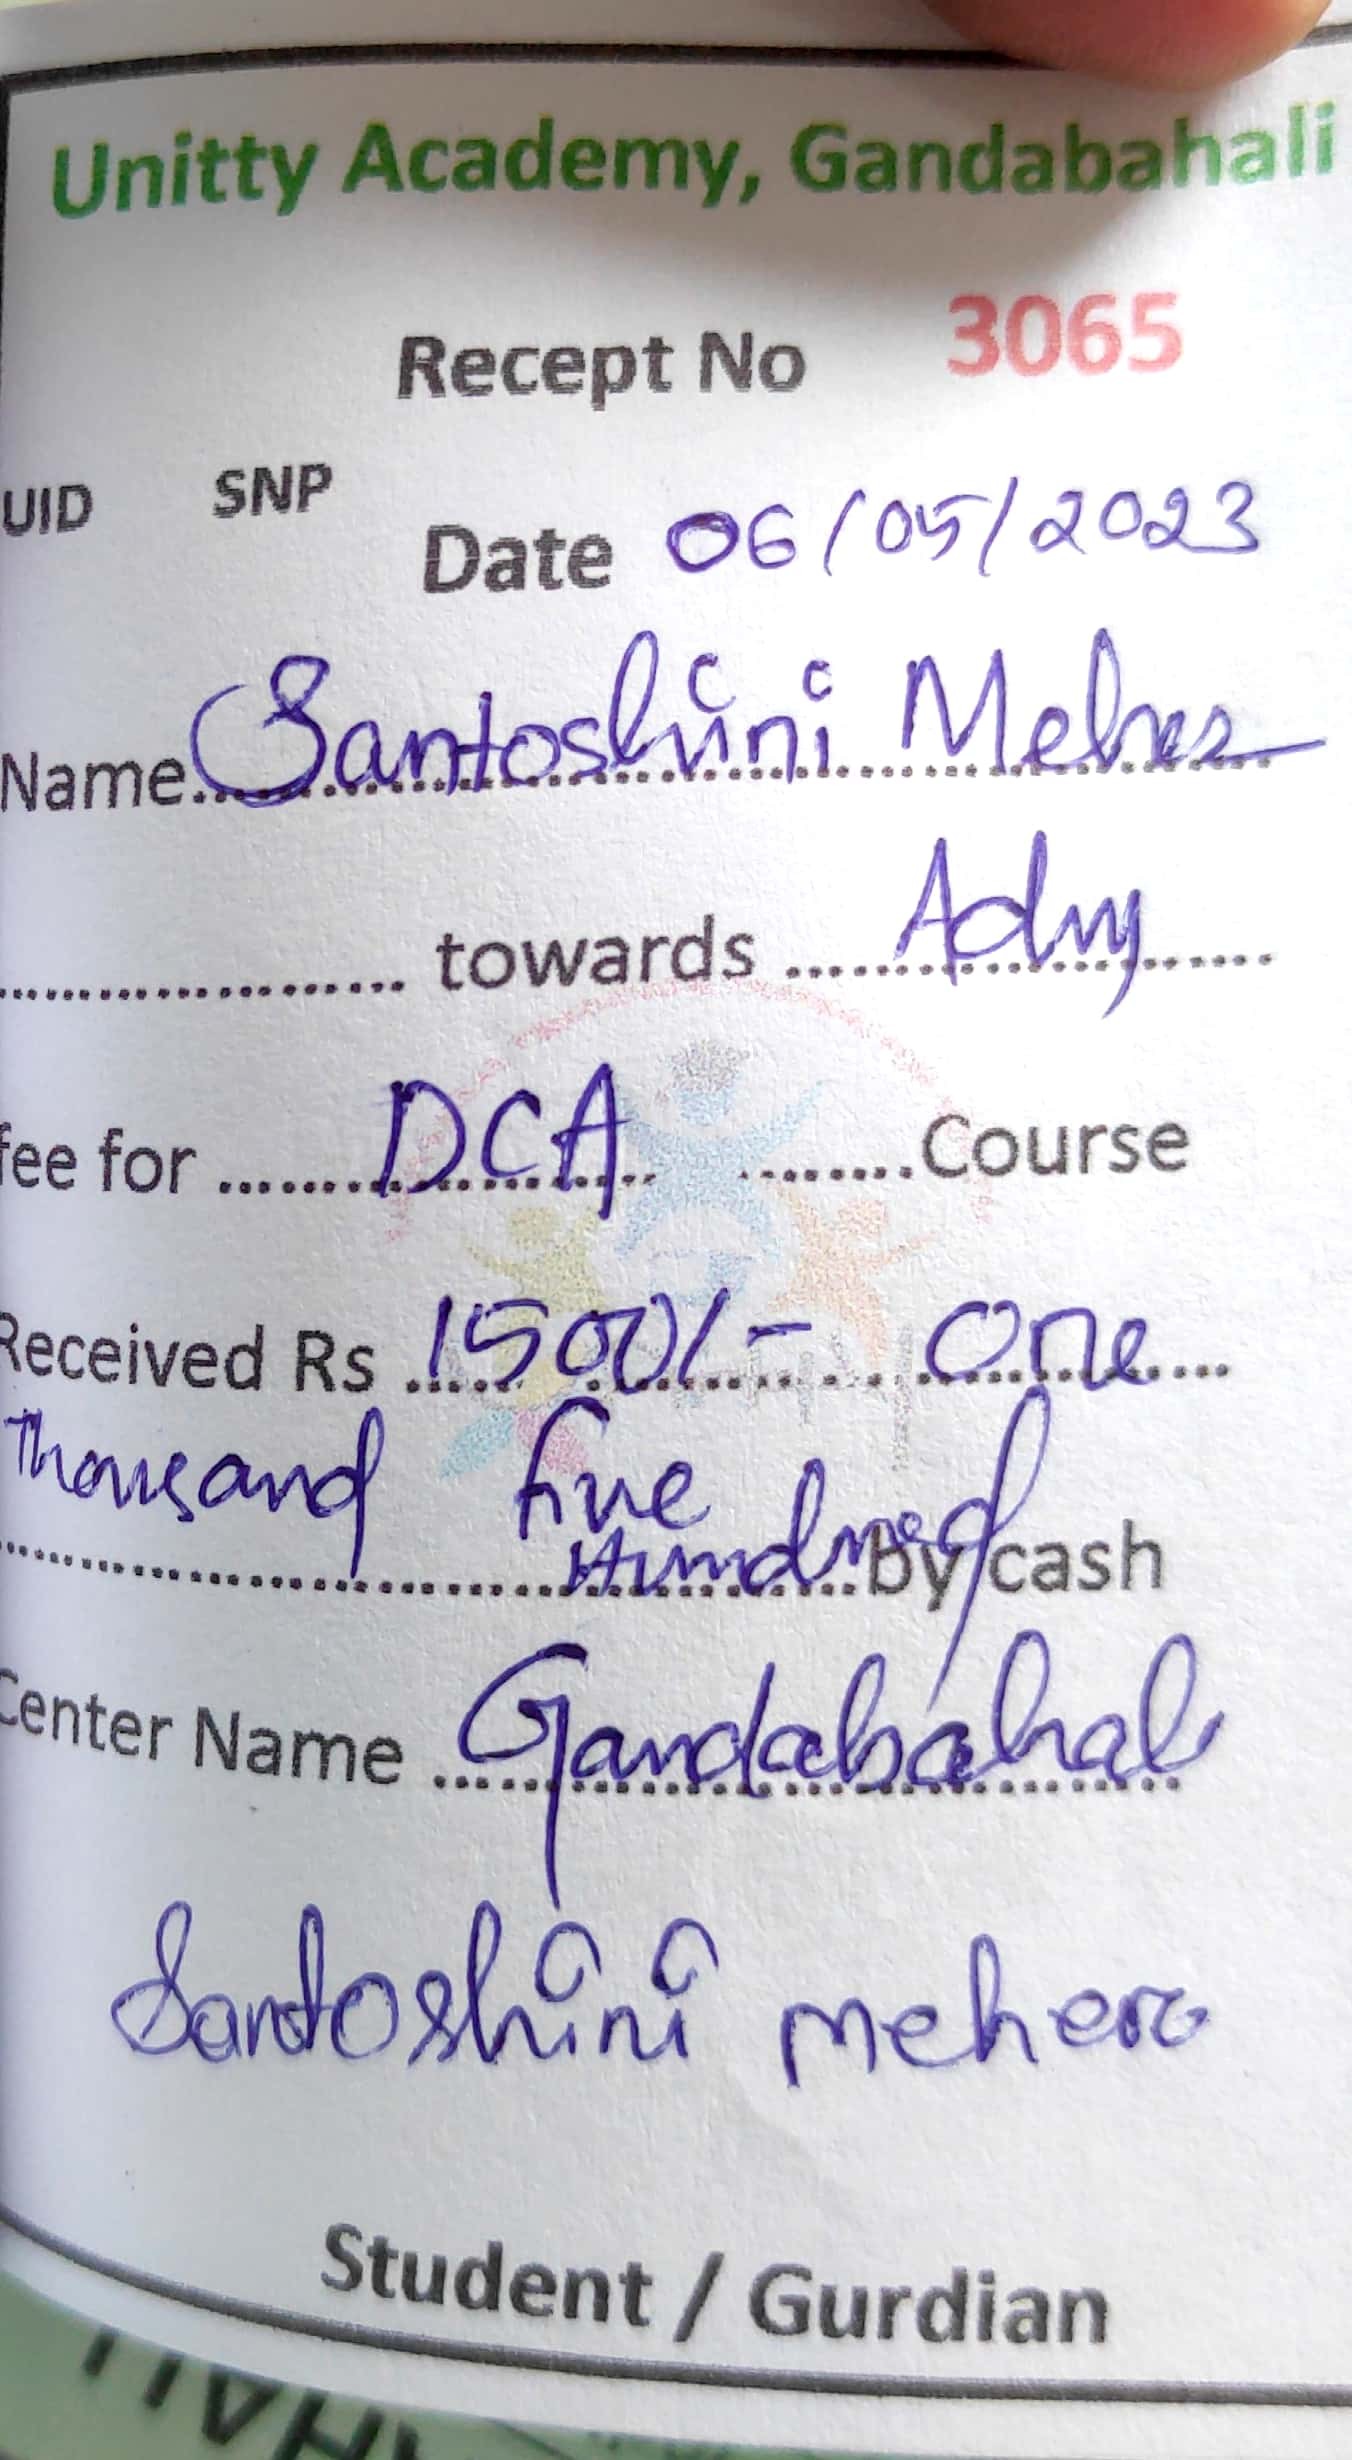 Unitty Academy, Gandabahali
Recept No 3065
UID SNP
Date 06/05/2023
Name Santoshini Meher
towards Adm
fee for DCA Course
Received Rs 1500/- One
Thousand five
Hundred by cash
Center Name Gandabahali
Santoshini meher
Student / Gurdian